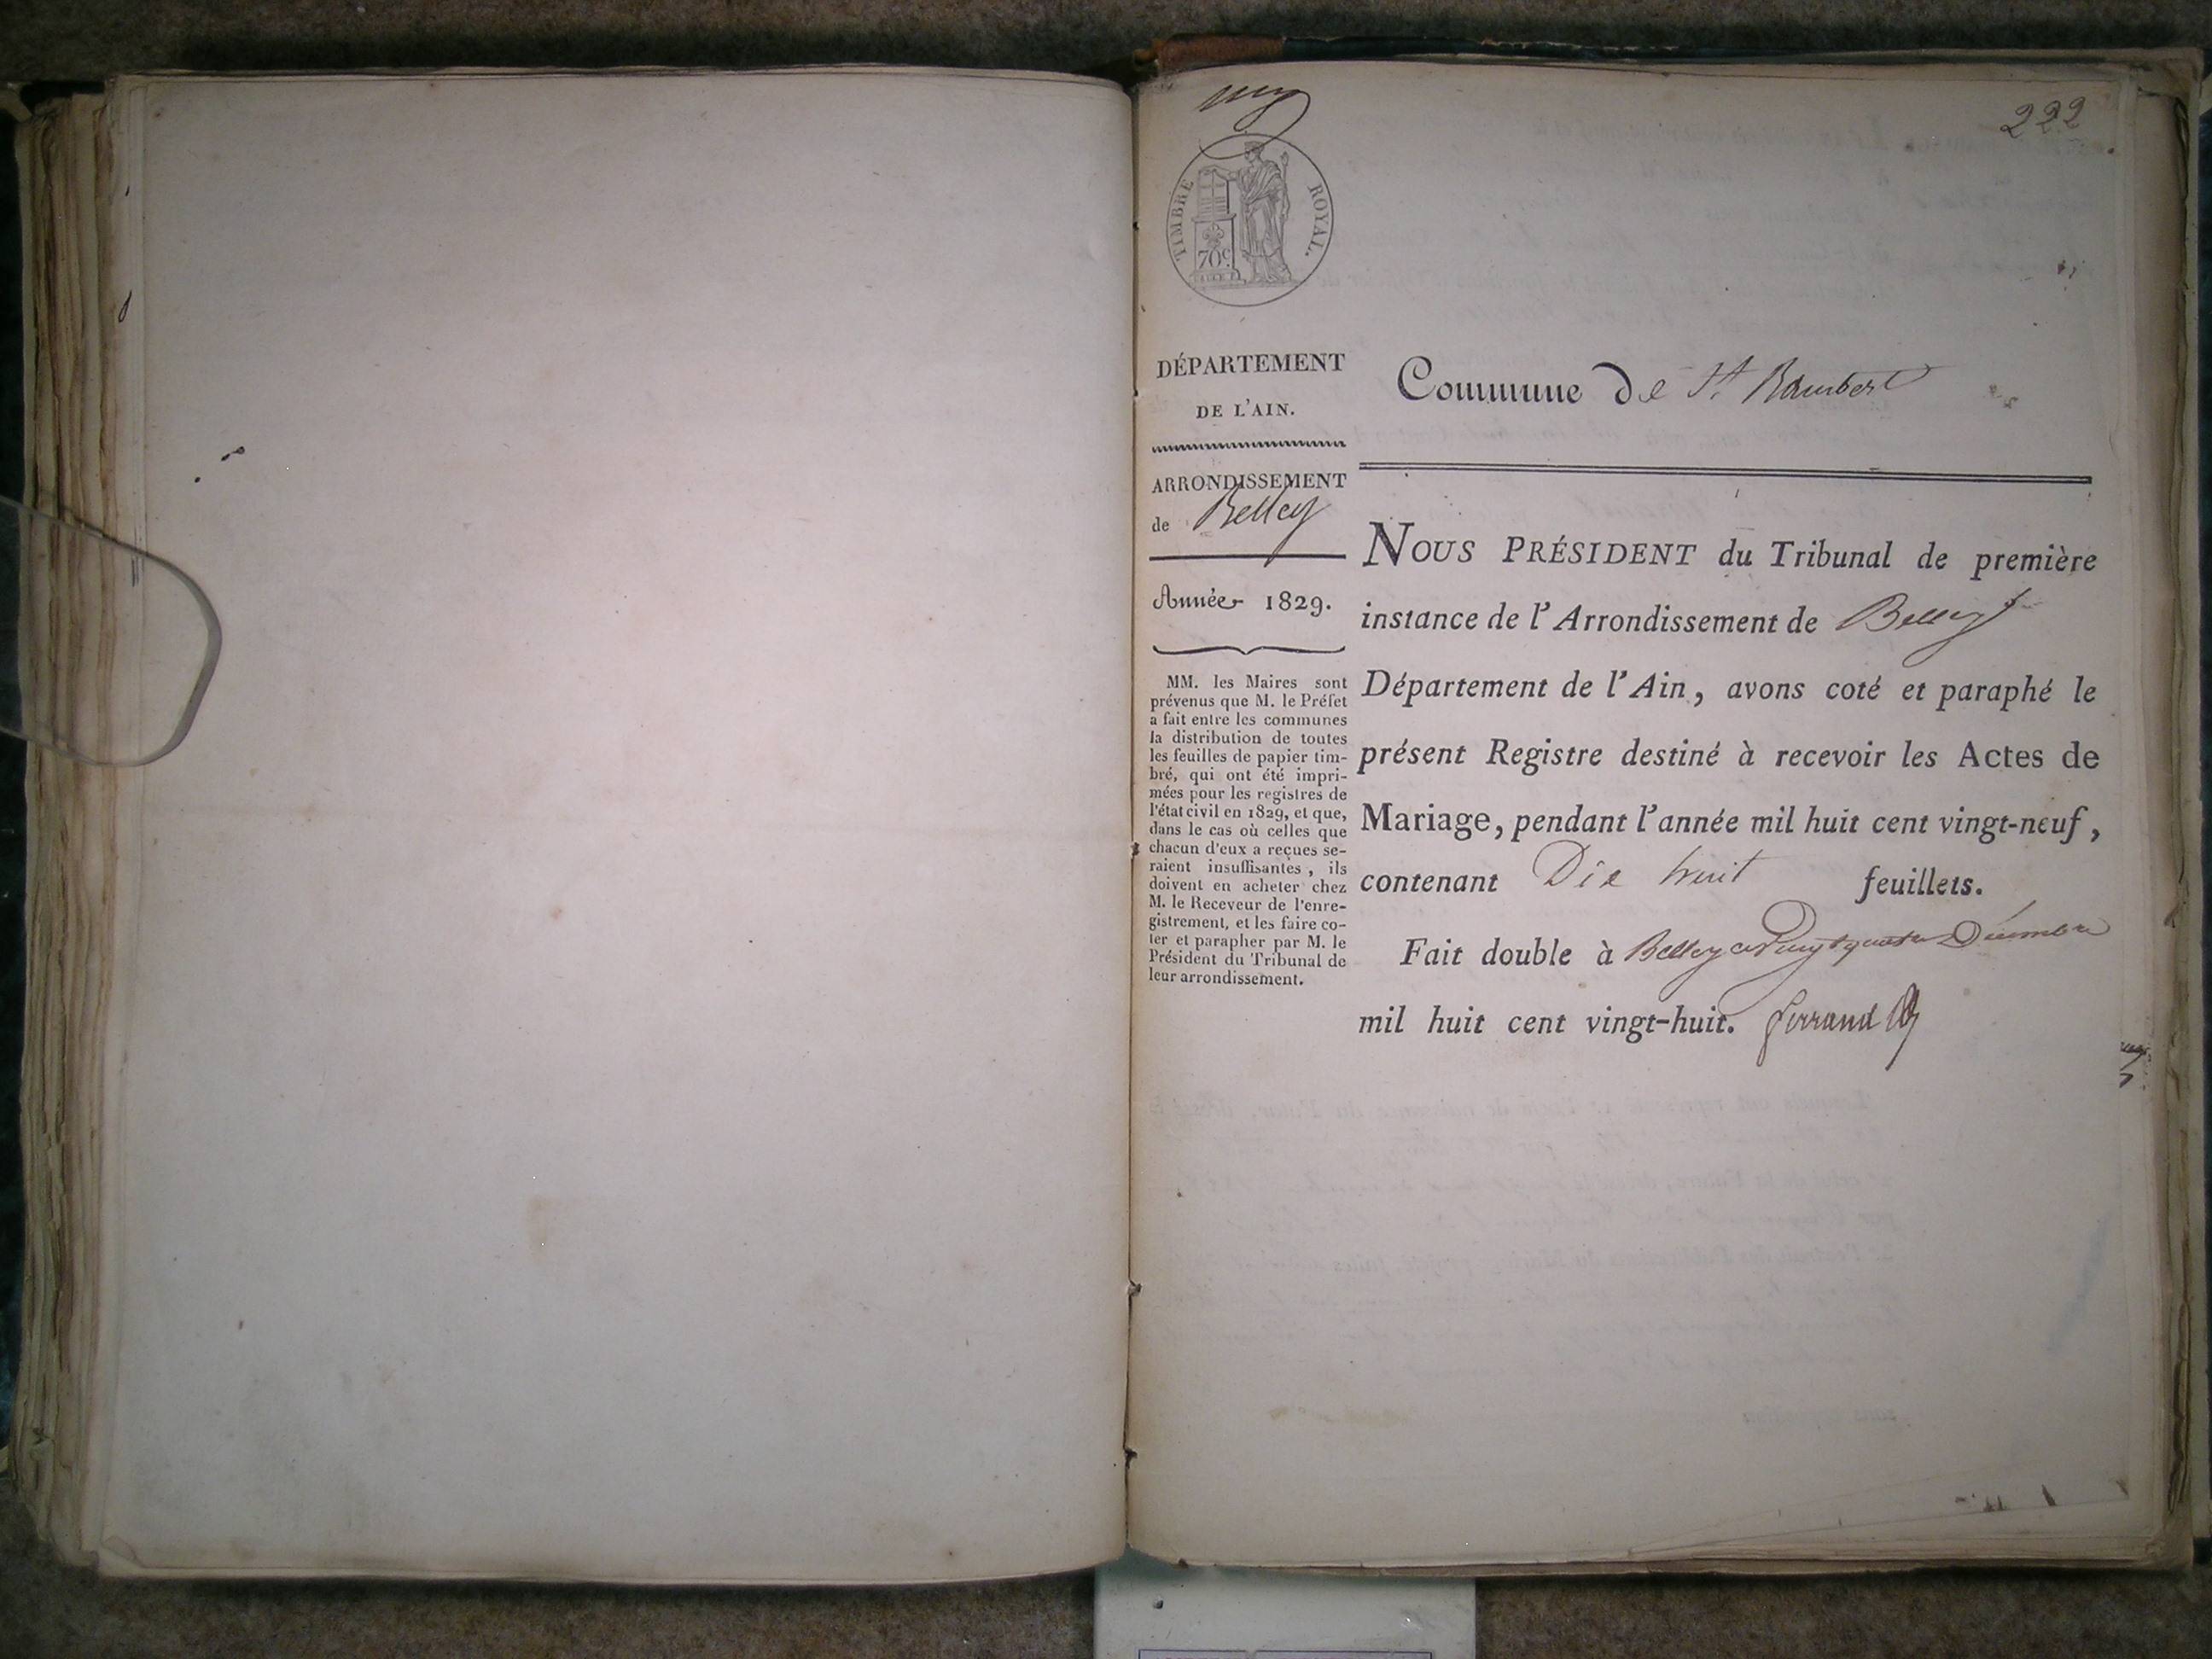 222
TIMBRE ROYAL.
70c.
DÉPARTEMENT
DE L'AIN.
ARRONDISSEMENT
de Belley
Année 1829.
MM. les Maires sont
prévenus que M. le Préfet
a fait entre les communes
la distribution de toutes
les feuilles de papier tim-
bré, qui ont été impri-
mées pour les registres de
l'état civil en 1829, et que,
dans le cas où celles que
chacun d'eux a reçues se-
raient insuffisantes, ils
doivent en acheter chez
M. le Receveur de l'enre-
gistrement, et les faire co-
ter et parapher par M. le
Président du Tribunal de
leur arrondissement.
Commune de St. Rambert
NOUS PRÉSIDENT du Tribunal de première
instance de l'Arrondissement de Belley
Département de l'Ain, avons coté et paraphé le
présent Registre destiné à recevoir les Actes de
Mariage, pendant l'année mil huit cent vingt-neuf,
contenant Dix huit feuillets.
Fait double à Belley ce vingt quatre Décembre
mil huit cent vingt-huit. ferrand